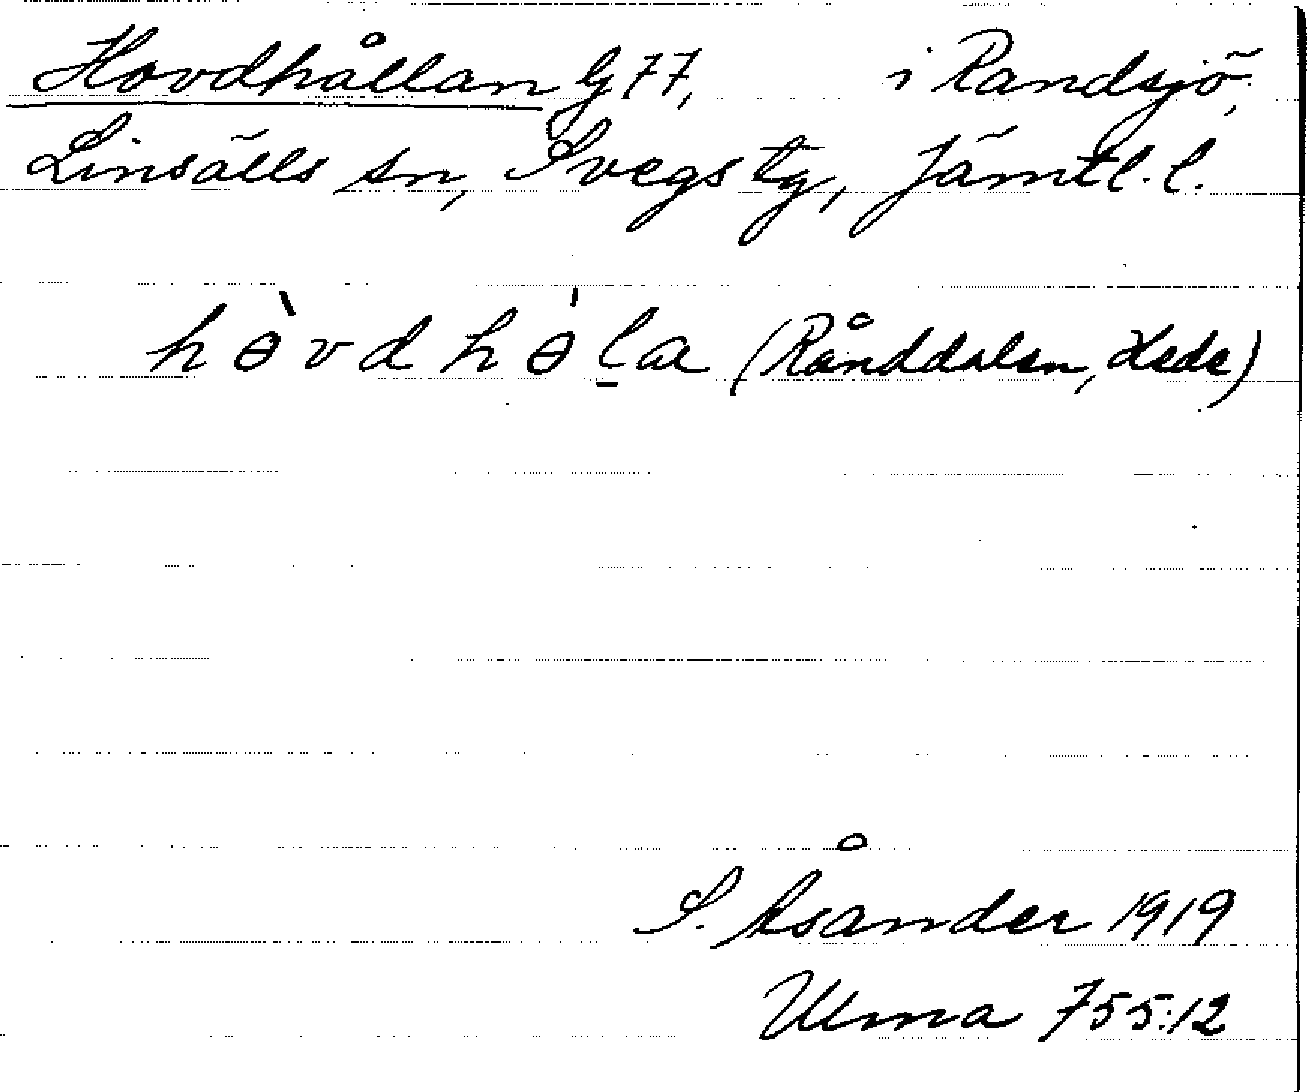 Hovdhållan G 77, i Randsjö,
Linsälls sn, Svegs tg, Jämtl. l.
hɵ̀vdhɵ́l̠a (Rånddalen, Hede)
S. Åsander 1919
Ulma 755:12